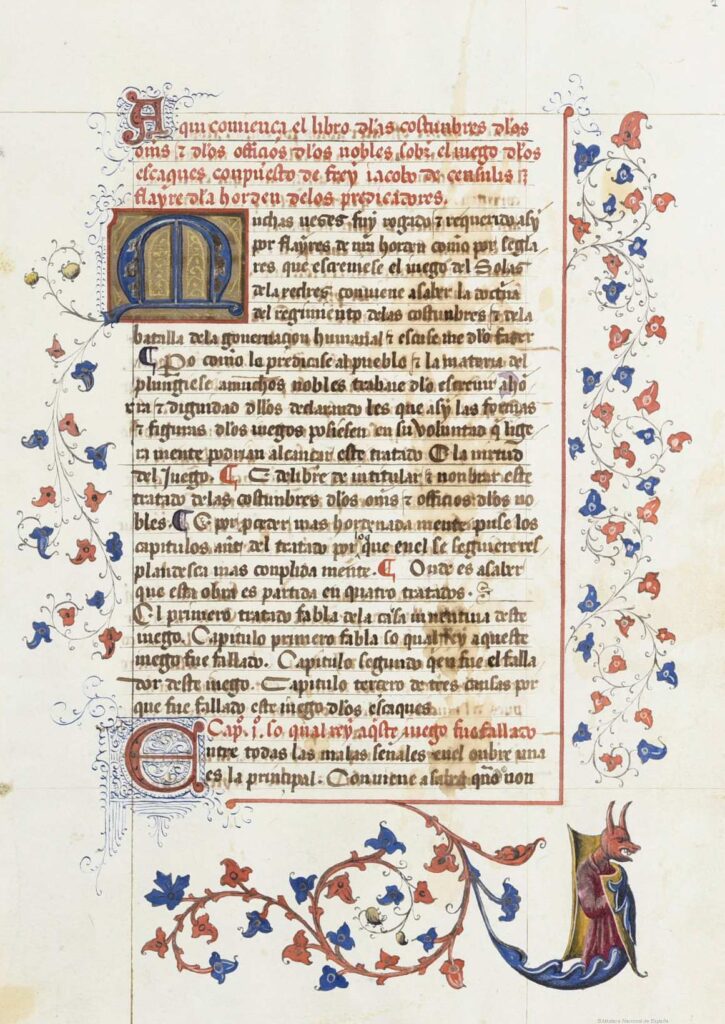 Aqui comiença el libro dlas costunbres dlos
oms ⁊ dlos officios dlos nobles sobr el iuego dlos
escaques conpuesto de frey iacobo de censulis
flayre dla horden delos predicadores.
Muchas ueçes fuy rogado ⁊ requerido asy
por flayres de mia horden como por segla
res que escreuiese el iuego del Solas
conuiene a saber la doctrina
del regimiento delas costunbres ⁊ dela
batalla dela gouernaçion humanal ⁊ escuse me dlo fazer
Po como lo predicase al pueblo ⁊ la materia del
plugiese a muchos nobles trabaie dlo escreuir a ho
rra ⁊ dignidad dllos declarando les que asy las formas
⁊ figuras dlos iuegos posiesen en su voluntad q lige
ra mente podrian alcançar este tratado ⁊ la uirtud
del Juego. E delibre de intitular ⁊ nonbrar este
tratado delas costunbres dlos oms ⁊ officios dlos no
bles. E por pceder mas hordenada mente puse los
capitulos ante del tratado por que enel se seguiere res
plandesca mas conplida mente. Onde es a saber
que esta obra es partida en quatro tratados.
El primero tratado fabla dela casa inuentiua deste
iuego. Capitulo primero fabla so qual rey aqueste
iuego fue fallado. Capitulo segundo qen fue el falla
dor deste iuego. Capitulo tercero de tres causas por
que fue fallado este iuego dlos escaques
Capº. jº. so qual rey aqste iuego fue fallado
Entre todas las malas señales enel onbre una
es la prinçipal. Conuiene a saber qndo non
Biblioteca Nacional de España